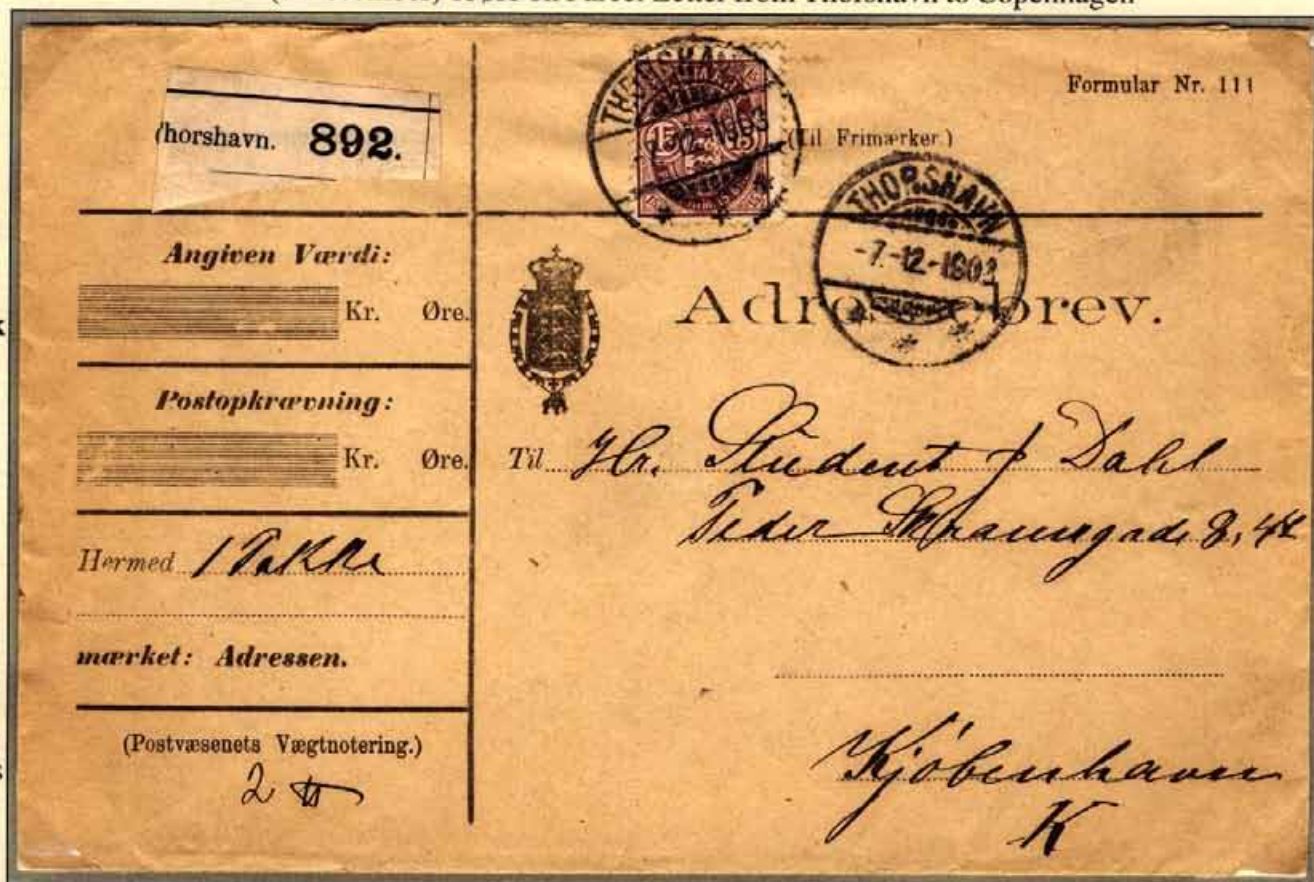 Parcel Letter from Thorshavn to Copenhagen
horshavn. 892.
THORSHAVN
15 15
12.-1903
Formular Nr. 111
(Til Frimærker.)
THORSHAVN
-7.-12.-1903
Angiven Værdi:
Kr. Øre.
Postopkrævning:
Kr. Øre.
Hermed 1 Pakke
mærket: Adressen.
(Postvæsenets Vægtnotering.)
2 ℔
Adressebrev.
Til Hr. Student J Dahl
Peder Skramsgade 8, 4
Kjøbenhavn
K